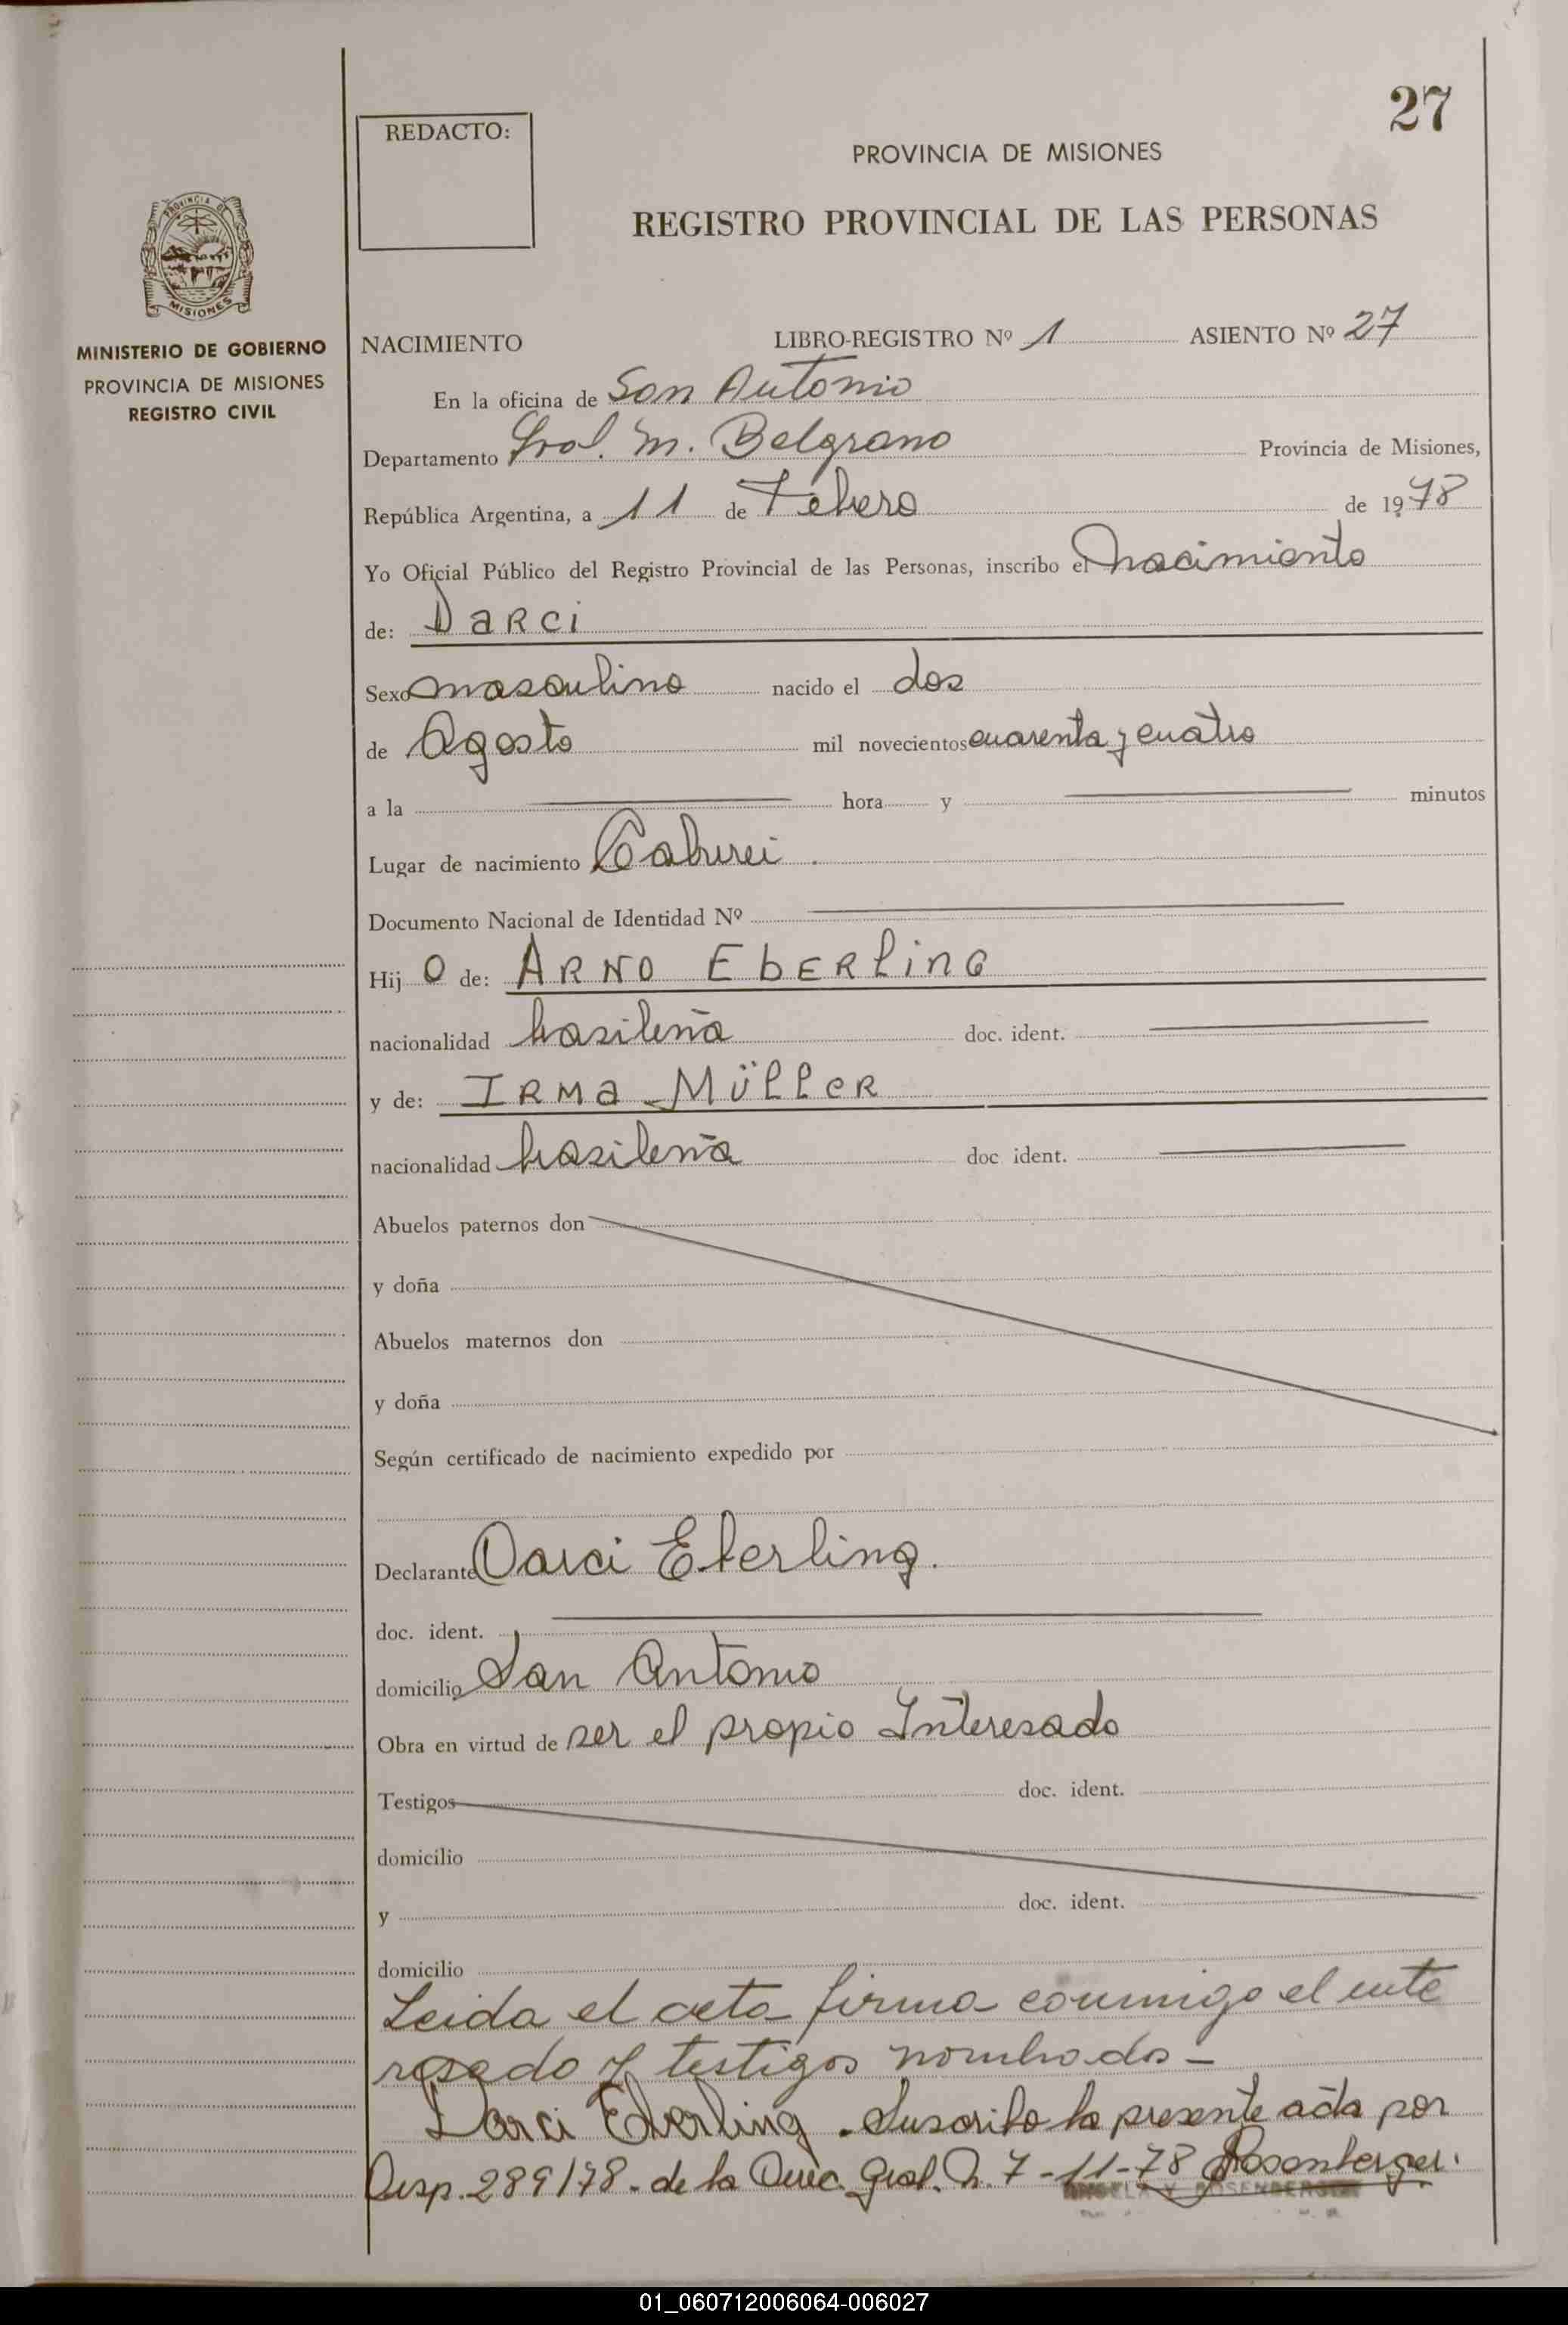 27
REDACTO:
PROVINCIA DE MISIONES
REGISTRO PROVINCIAL DE LAS PERSONAS
PROVINCIA DE
MISIONES
MINISTERIO DE GOBIERNO
PROVINCIA DE MISIONES
REGISTRO CIVIL
NACIMIENTO LIBRO-REGISTRO Nº 1 ASIENTO Nº 27
En la oficina de San Antonio
Departamento Gral. M. Belgrano Provincia de Misiones,
República Argentina, a 11 de Febero de 1978
Yo Oficial Público del Registro Provincial de las Personas, inscribo el nacimiento
de: DARCi
Sexo masculino nacido el dos
de Agosto mil novecientos cuarenta y cuatro
a la hora y minutos
Lugar de nacimiento Caburei.
Documento Nacional de Identidad Nº
Hij O de: ARNO EbERLinG
nacionalidad brasileña doc. ident.
y de: IRMa MüLLeR
nacionalidad brasileña doc. ident.
Abuelos paternos don
y doña
Abuelos maternos don
y doña
Según certificado de nacimiento expedido por
Declarante Darci Eberling.
doc. ident.
domicilio San Antonio
Obra en virtud de ser el propio Interesado
Testigos doc. ident.
domicilio
y doc. ident.
domicilio
Leida el acta firma conmigo el inte
resado y testigos nombrados -
Darci Eberling. Suscribo la presente acta por
Disp. 289/78. de la Direc. Gral. 7-11-78 Rosenberger.
ANGELA Y. ROSENBERGER
01_060712006064-006027